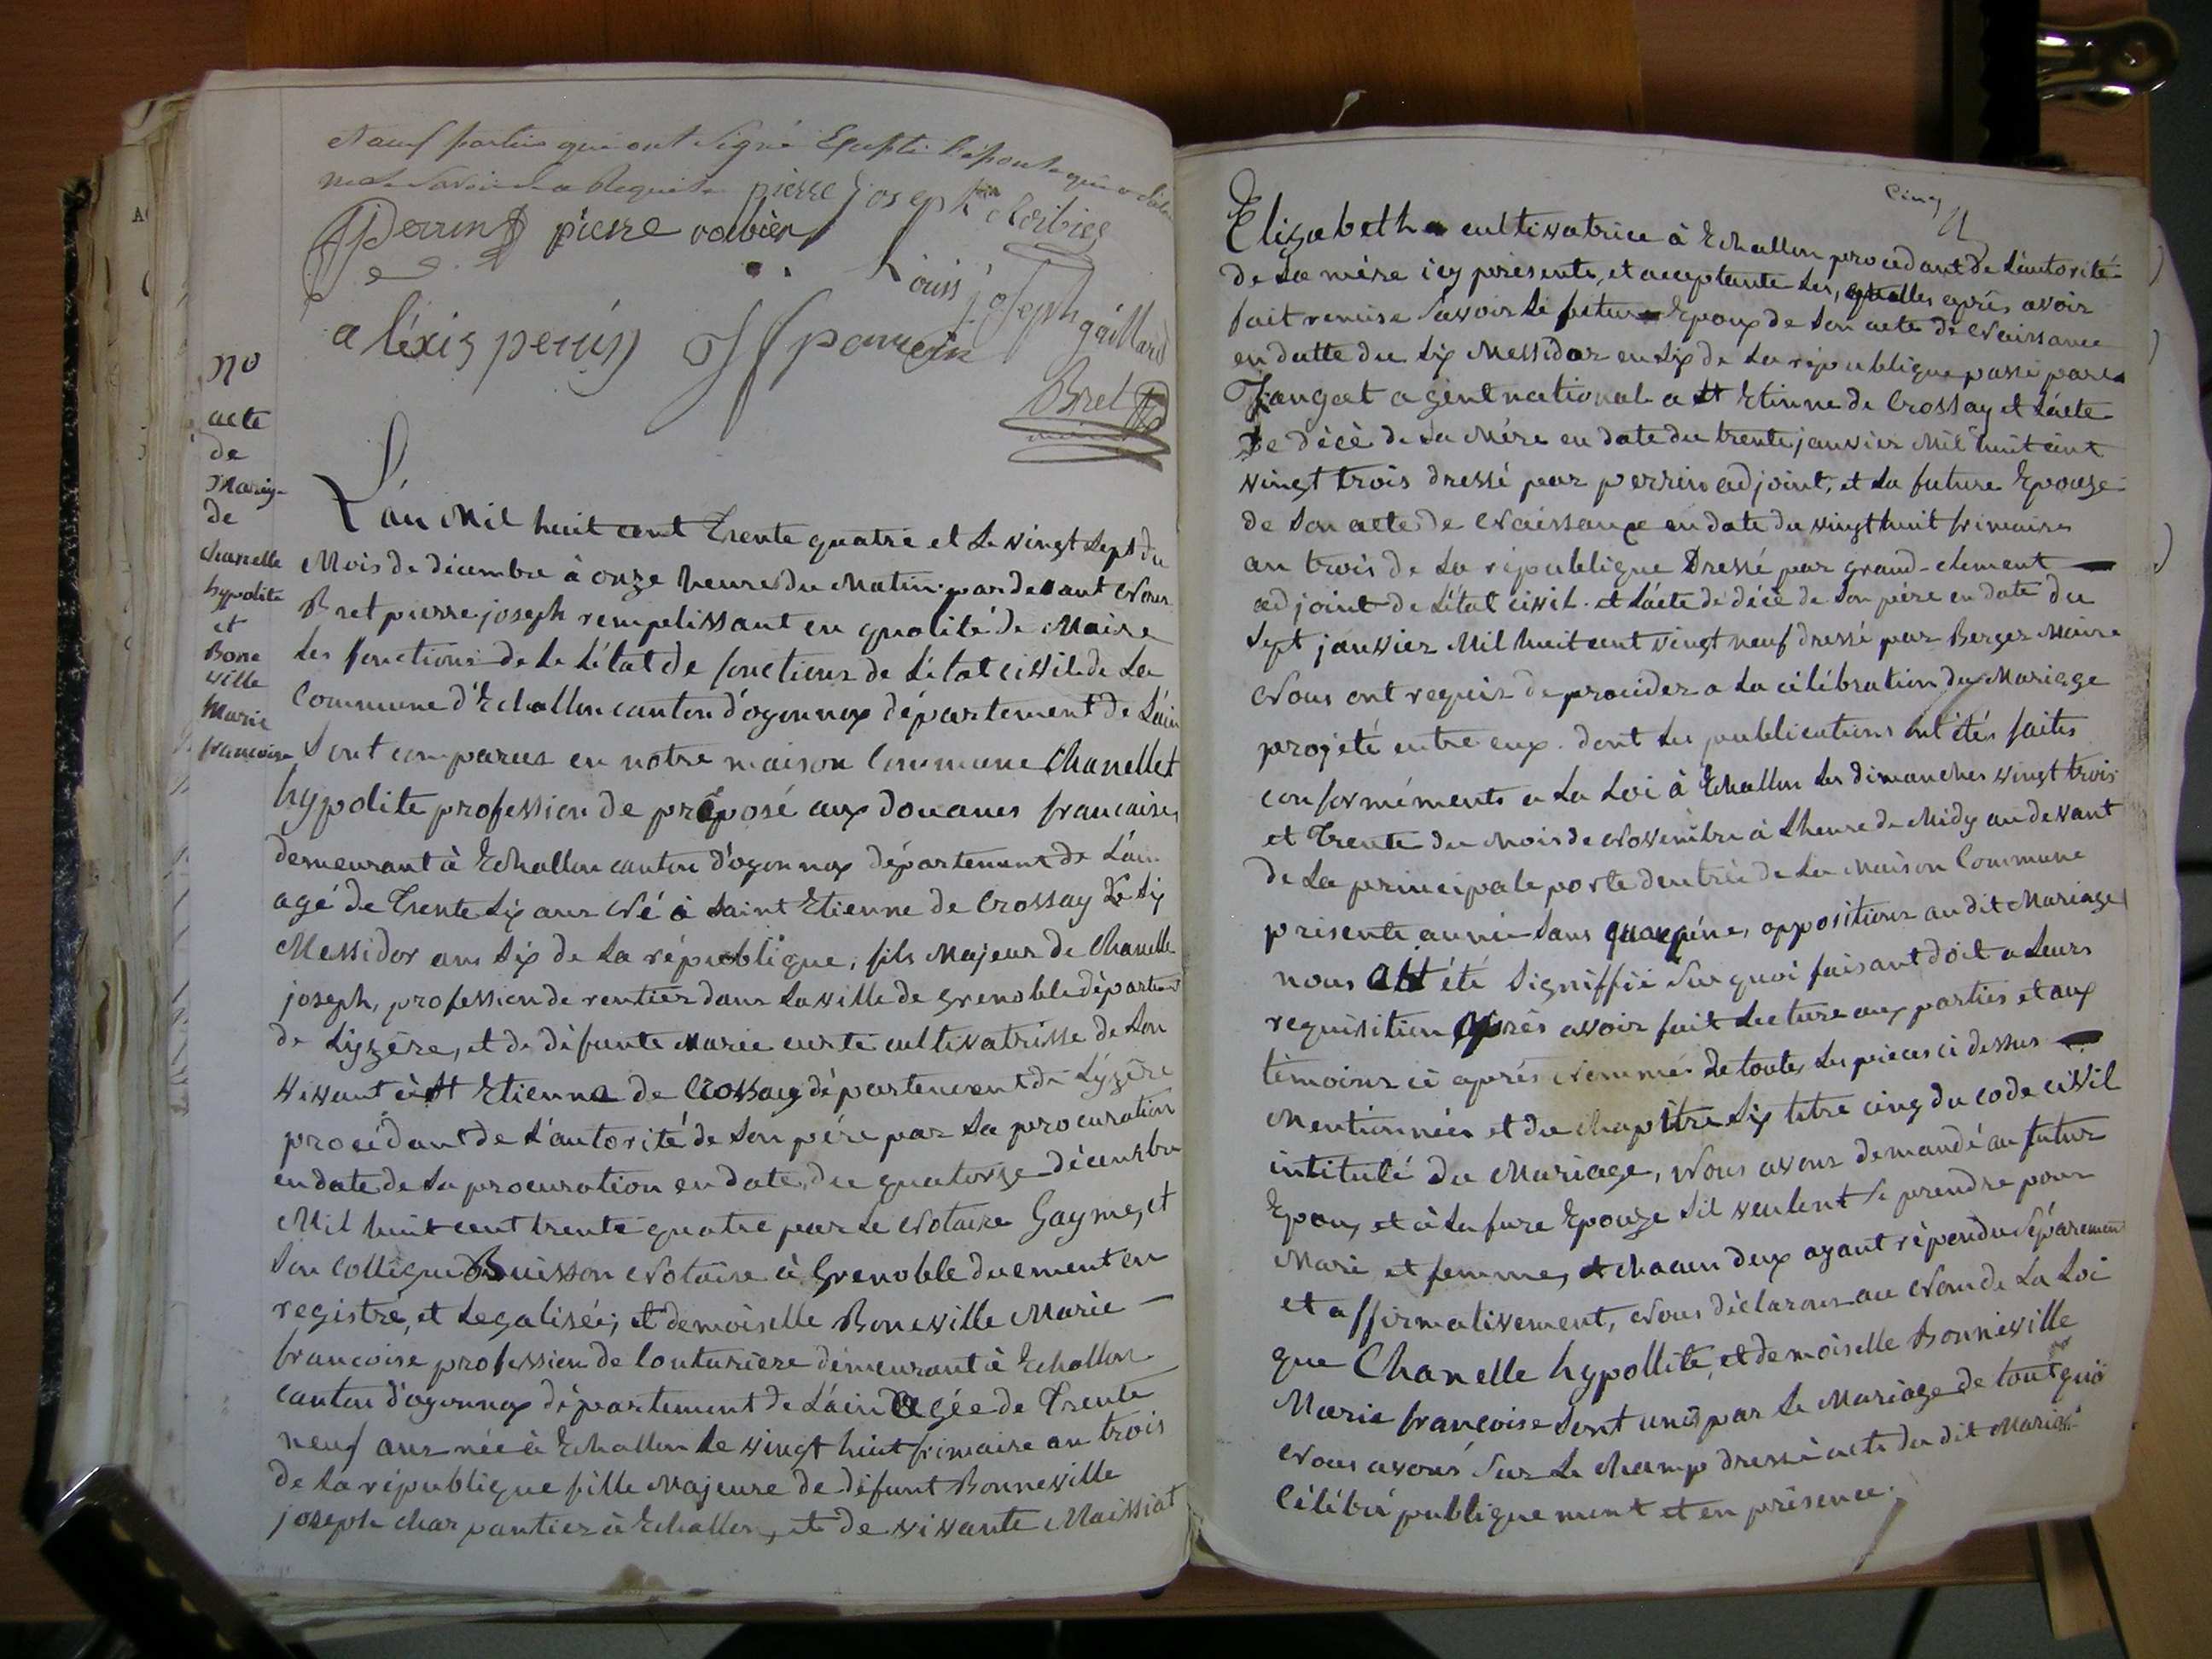 Neuf parties qui ont signé Excepté l'épouse qui a déclaré
ne le savoir de ce Requise pierre joseph Barbier
Perrin pierre barbier
Louis joseph gaillard
aléxis perrin JJ poncin
Bret
maire
no
acte
de
Mariage
de
chanelle
hypolite
et
Bone
ville
Marie
francoise
L'án Mil huit cent Trente quatre et le vingt sept du
Mois de décembre à onze heure du Matin par devant Nous
Bret pierre joseph rempelissant en qualité de Maire
les fonctions de L'état de fonctions de L'état civil de La
Commune d'Echallon canton d'oyonnax département de L'ain
sont comparus en notre maison Commune Chanellet
hypolite profession de préposé aux douanes francaises
demeurant à Echallon canton d'oyonnax département de L'ain
agé de Trente six ans Né à Saint Etienne de Crossay Le six
Messidor an Six de La république, fils Majeur de Chanelle
joseph, profession de rentier dans La ville de grenoble départemt
de Lizère, et de défunte Marie curte cultivatrisse de Son
vivant à St Etienne de Crossay département de L'yzère
procédant de L'autorité de Son père par Sa procuration
en date de Sa procuration en date, du quatorze décembre
Mil huit cent trente quatre par Le Notaire Gayme, et
Son Collègue Buisson Notaire à Grenoble duement en
registré, et Legalisée, et demoiselle Boneville Marie —
francoise profession de Couturière démeurant à Echallon
canton d'oyonnax département de L'ain agée de Trente
neuf ans née à Echallon Le vingt huit frimaire an trois
de La république fille Majeure de défunt Bonneville
joseph charpantier à Echallon, et de vivante Maissiat
Cinq
Elizabeth cultivatrice à Echallon procedant de L'autorité
de Sa mère icy présente, et acceptante Les, quelles après avoir
fait remise Savoir Le futur Epoux de Son acte de Naissance
en datte du Six Messidor an Six de La république passé par
Jangat agent national a St Etienne de Crossay et L'acte
de décè de Sa Mére en date du trente janvier Mil huit cent
vingt trois dressé par perrin adjoint, et La future Epouze
de Son acte de Naissance en date du vingt huit frimaire
an trois de La république Dressé par grand-clement —
adjoint de L'état civil. et L'acte de décè de Son père en date du
Sept janvier Mil huit cent vingt neuf dressé par Berger Maire
Nous ont requis de procéder a La célébration du Mariage
projeté entre eux. dont Les publications ont étés faites
conformements a La Loi à Echallon Les dimanches vingt trois
et Trente du Mois de Novembre à L'heure de Midy au devant
de La principale porte dentrée de La Maison Commune
présente année Sans qu'aucune, oppositions au dit Mariage
nous ait été Signiffié Sur quoi faisant doit a Leurs
requisition après avoir fait Lecture aux parties et aux
témoins ci après Nommés de toutes Les pièces ci dessus —
Mentionnées et du chapitre Six titre cinq du code civil
intitulé du Mariage, Nous avons demandé au futur
Epoux, et à La fure Epouze Sil veulent Se prendre pour
Mari et femme, et chacun deux ayant répondu Séparement
et affirmativement, Nous déclarons au Nom de La Loi
que Chanelle hypollite, et demoiselle Bonneville
Marie francoise Sont unis par Le Mariage de tout quoi
Nous avons Sur Le champ dressé acte du dit Mariage
Célébré publiquement et en présence.